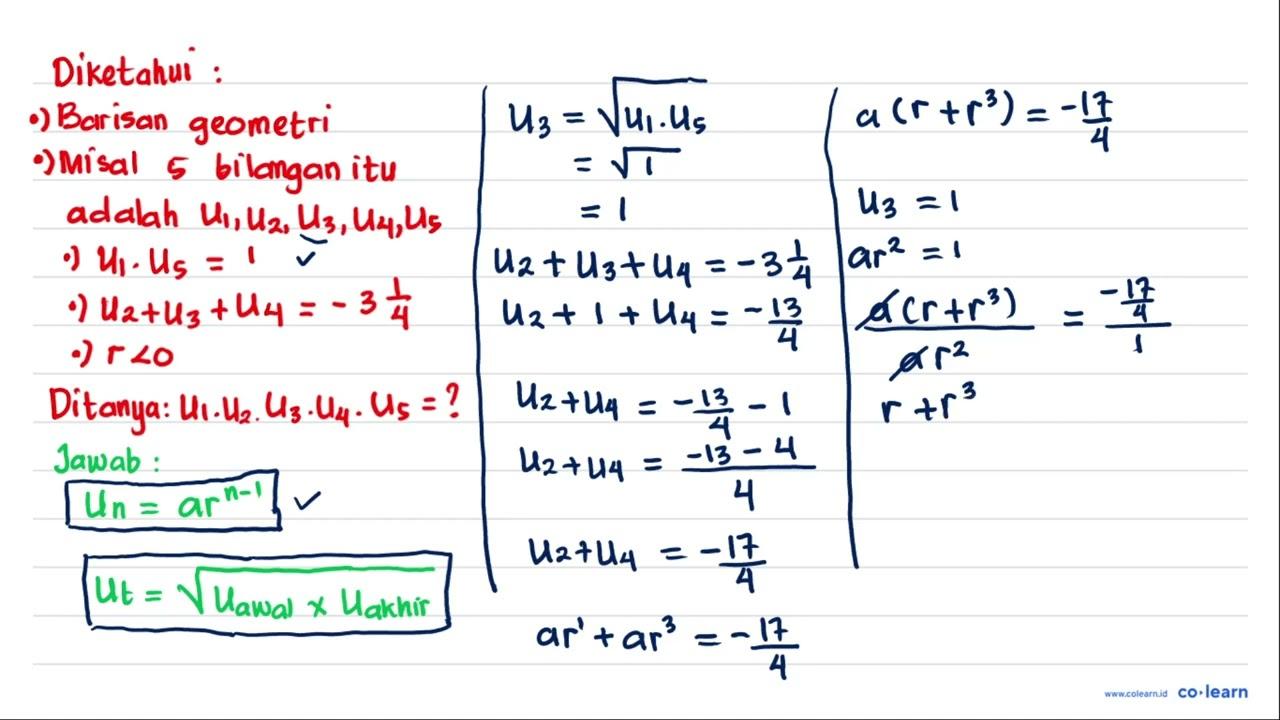 Diketahui :
•) Barisan geometri
•) Misal 5 bilangan itu
adalah U1, U2, U3, U4, U5
•) U1 . U5 = 1 ✓
•) U2 + U3 + U4 = - 3 1/4
•) r < 0
Ditanya: U1 . U2 . U3 . U4 . U5 = ?
Jawab :
Un = ar^(n-1) ✓
Ut = √(Uawal x Uakhir)
U3 = √(U1 . U5)
= √1
= 1
U2 + U3 + U4 = - 3 1/4
U2 + 1 + U4 = - 13/4
U2 + U4 = - 13/4 - 1
U2 + U4 = (-13 - 4)/4
U2 + U4 = - 17/4
ar^1 + ar^3 = - 17/4
a (r + r^3) = - 17/4
U3 = 1
ar^2 = 1
a(r + r^3) / ar^2 = (-17/4) / 1
r + r^3
www.colearn.id co·learn